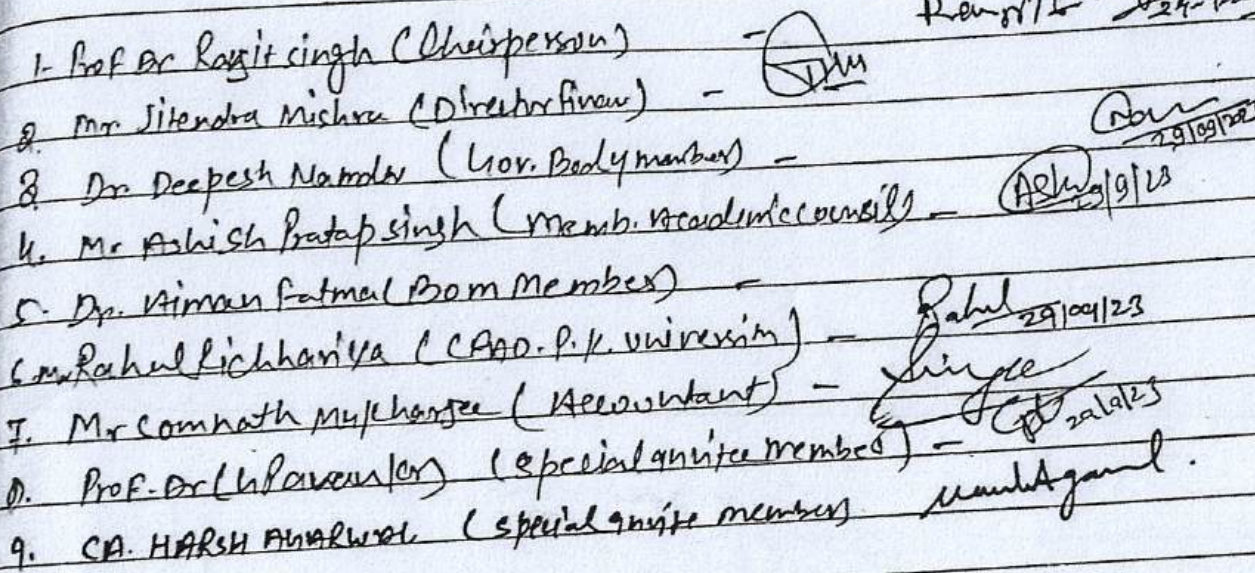 1- Prof Dr Ranjit singh (Cheirperson) -
2. Mr. Jitendra Mishra (Director finan) -
3. Dr. Deepesh Namdev (Gov. Body member) - 29/09/202
4. Mr Ashish Pratap singh (Memb. Academic counsil) - 29/9/23
5- Dr. Aiman fatma (Bom Member) -
6. Mr Rahul Richhariya (CFAO. P.K. University) - Rahul 29/09/23
7. Mr Somnath Mukharjee (Accountant) -
8. Prof. Dr (special anvitee member) - 29/9/23
9. CA. HARSH AGARWAL (special anvite member)